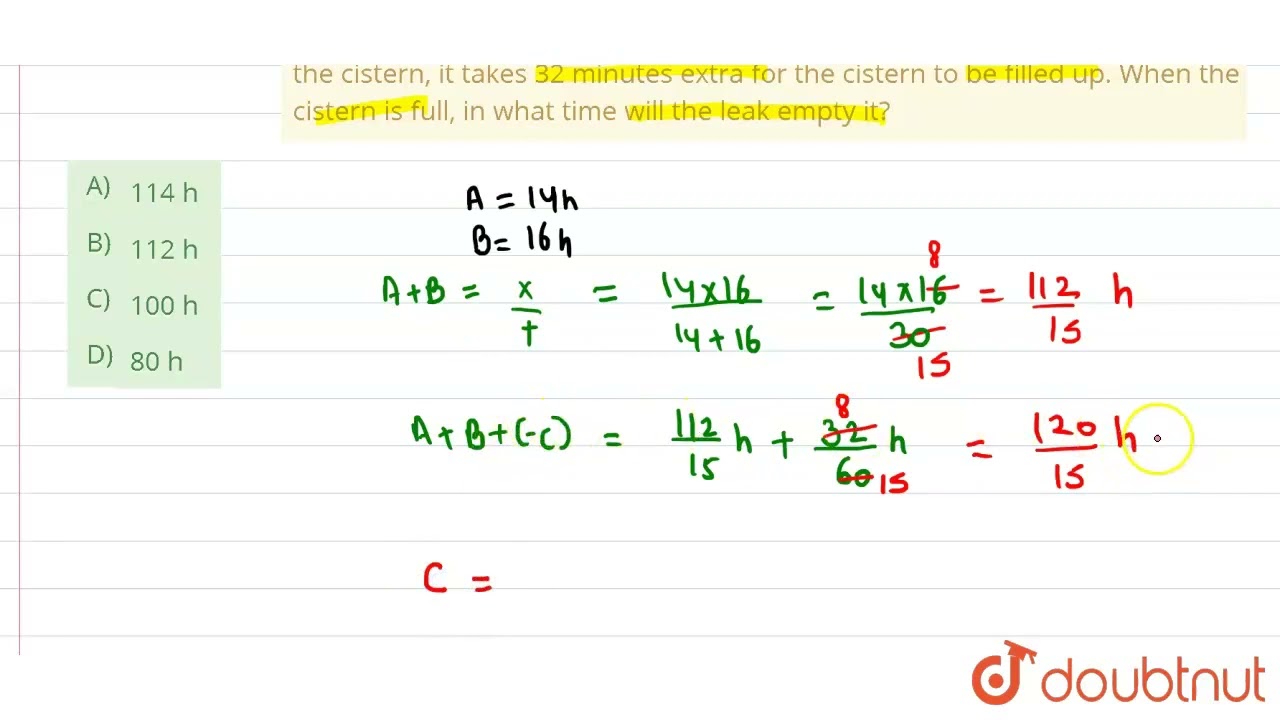 the cistern, it takes 32 minutes extra for the cistern to be filled up. When the
cistern is full, in what time will the leak empty it?
A) 114 h
B) 112 h
C) 100 h
D) 80 h
A = 14h
B = 16h
A+B = x/t = 14×16/14+16 = 14×16/30 8 15 = 112/15 h
A+B+(-C) = 112/15 h + 32/60 h 8 15 = 120/15 h
C =
doubtnut